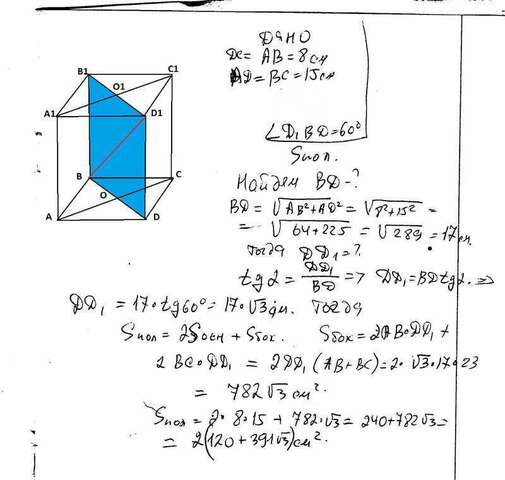 B1 C1
O1
A1 D1
B C
O
A D
Дано
DC = AB = 8 см
AD = BC = 15 см
∠D₁BD = 60°
Sпол.
Найдем BD - ?
BD = √AB²+AD² = √8²+15² =
= √64+225 = √289 = 17 см.
тогда DD₁ = ?
tg2 = DD₁/BD => DD₁ = BD tg2. =>
DD₁ = 17·tg60° = 17·√3 см. тогда
Sпол = 2Sосн + Sбок. Sбок = 2AB·DD₁ +
2BC·DD₁ = 2DD₁(AB+BC) = 2·√3·17·23
= 782√3 см².
Sпол = 2·8·15 + 782·√3 = 240+782√3 =
= 2(120 + 391√3) см².